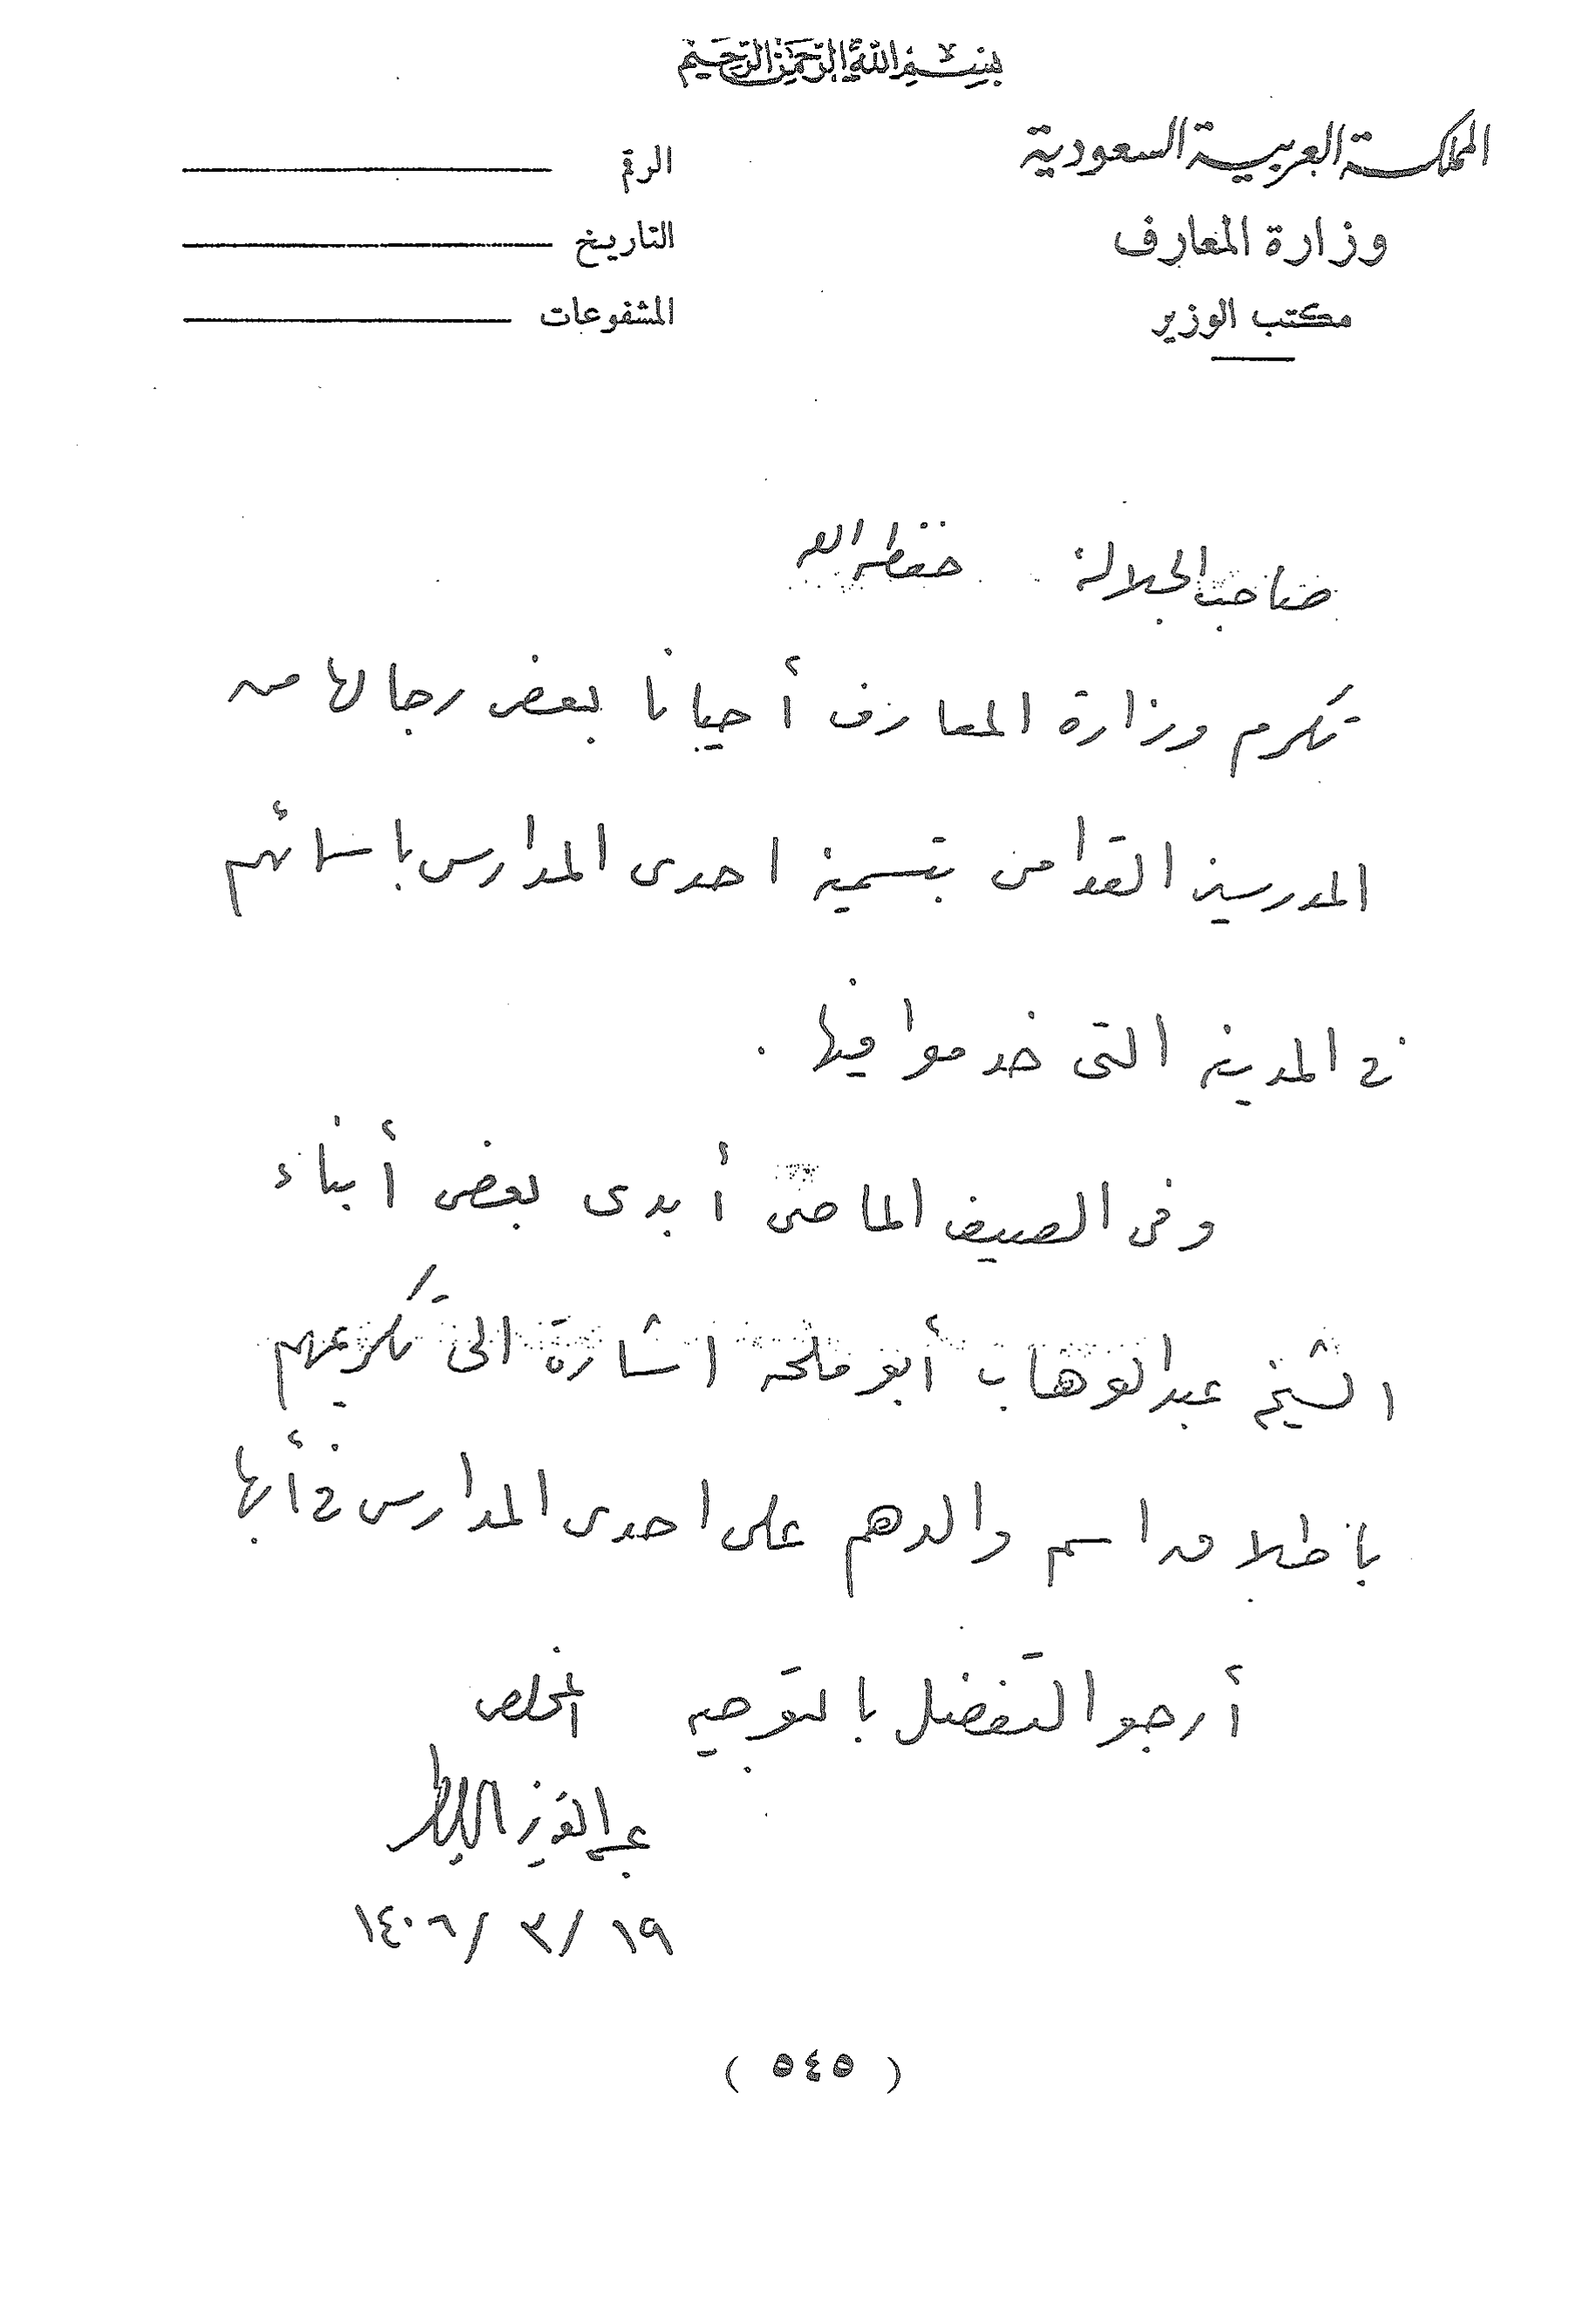 بسم الله الرحمن الرحيم
المملكة العربية السعودية
وزارة المعارف
مكتب الوزير
الرقم
التاريخ
المشفوعات
صاحب الجلالة حفظه الله
تكرم وزارة المعارف أحيانا بعض رجالها من
المدرسين القدامى بتسمية احدى المدارس باسمائهم
في المدينة التى خدموا فيها .
وفى الصيف الماضى أبدى بعض أبناء
الشيخ عبدالوهاب أبو ملحه اشارة الى تكريمهم
باطلاق اسم والدهم على احدى المدارس في أبها
أرجو التفضل بالتوجيه المخلص
عبدالعزيز
١٩ / ٣ / ١٤٠٦
( ٥٤٥ )